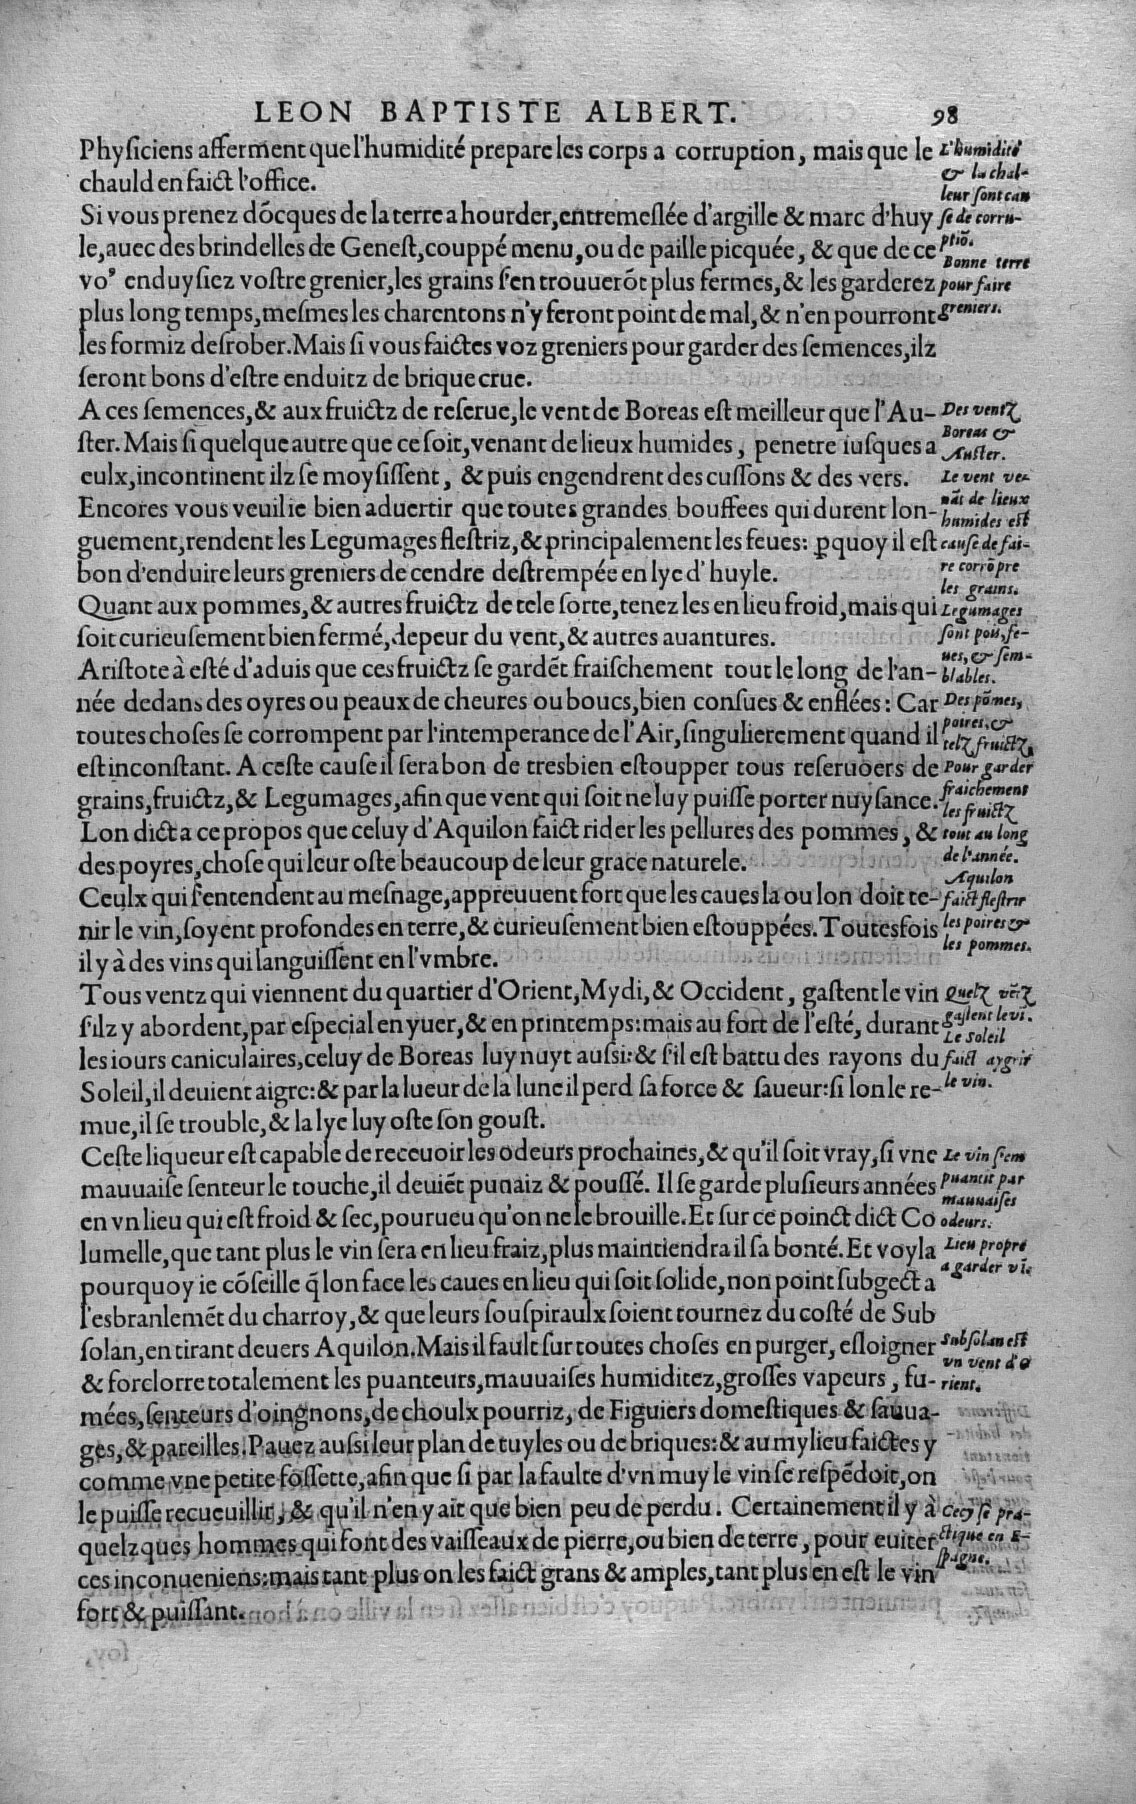 LEON BAPTISTE ALBERT. 98
Physiciens afferment que l'humidité prepare les corps a corruption, mais que le
chauld en faict l'office.
Si vous prenez dõcques de la terre a hourder, entremeslée d'argille & marc d'huy
le, auec des brindelles de Genest, couppé menu, ou de paille picquée, & que de ce
voꝰ enduysiez vostre grenier, les grains s'en trouuerõt plus fermes, & les garderez
plus long temps, mesmes les charentons n'y feront point de mal, & n'en pourront
les formiz desrober. Mais si vous faictes voz greniers pour garder des semences, ilz
seront bons d'estre enduitz de brique crue.
A ces semences, & aux fruictz de reserue, le vent de Boreas est meilleur que l'Au-
ster. Mais si quelque autre que ce soit, venant de lieux humides, penetre iusques a
eulx, incontinent ilz se moysissent, & puis engendrent des cussons & des vers.
Encores vous veuil ie bien aduertir que toutes grandes bouffees qui durent lon-
guement, rendent les Legumages flestriz, & principalement les feues: ꝑquoy il est
bon d'enduire leurs greniers de cendre destrempée en lye d'huyle.
Quant aux pommes, & autres fruictz de tele sorte, tenez les en lieu froid, mais qui
soit curieusement bien fermé, de peur du vent, & autres auantures.
Aristote à esté d'aduis que ces fruictz se gardẽt fraischement tout le long de l'an-
née dedans des oyres ou peaux de cheures ou boucs, bien consues & enflées: Car
toutes choses se corrompent par l'intemperance de l'Air, singulierement quand il
est inconstant. A ceste cause il sera bon de tresbien estoupper tous reseruoers de
grains, fruictz, & Legumages, afin que vent qui soit ne luy puisse porter nuysance.
Lon dict a ce propos que celuy d'Aquilon faict rider les pellures des pommes, &
des poyres, chose qui leur oste beaucoup de leur grace naturele.
Ceulx qui s'entendent au mesnage, appreuuent fort que les caues la ou lon doit te-
nir le vin, soyent profondes en terre, & curieusement bien estouppées. Toutesfois
il y à des vins qui languissent en l'vmbre.
Tous ventz qui viennent du quartier d'Orient, Mydi, & Occident, gastent le vin
s'ilz y abordent, par especial en yuer, & en printemps: mais au fort de l'esté, durant
les iours caniculaires, celuy de Boreas luy nuyt aussi: & s'il est battu des rayons du
Soleil, il deuient aigre: & par la lueur de la lune il perd sa force & saueur: si lon le re-
mue, il se trouble, & la lye luy oste son goust.
Ceste liqueur est capable de receuoir les odeurs prochaines, & qu'il soit vray, si vne
mauuaise senteur le touche, il deuiẽt punaiz & poussé. Il se garde plusieurs années
en vn lieu qui est froid & sec, pourueu qu'on ne le brouille. Et sur ce poinct dict Co
lumelle, que tant plus le vin sera en lieu fraiz, plus maintiendra il sa bonté. Et voyla
pourquoy ie cõseille q̃ lon face les caues en lieu qui soit solide, non point subgect a
l'esbranlemẽt du charroy, & que leurs souspiraulx soient tournez du costé de Sub
solan, en tirant deuers Aquilon. Mais il fault sur toutes choses en purger, esloigner
& forclorre totalement les puanteurs, mauuaises humiditez, grosses vapeurs, fu-
mées, senteurs d'oingnons, de choulx pourriz, de Figuiers domestiques & sauua-
ges, & pareilles. Pauez aussi leur plan de tuyles ou de briques: & au mylieu faictes y
comme vne petite fossette, afin que si par la faulte d'vn muy le vin se respẽdoit, on
le puisse recueuillir, & qu'il n'en y ait que bien peu de perdu. Certainement il y à
quelzques hommes qui font des vaisseaux de pierre, ou bien de terre, pour euiter
ces inconueniens: mais tant plus on les faict grans & amples, tant plus en est le vin
fort & puissant.
L'humidité
& la chal-
leur sont cau
se de corru-
ptiõ.
Bonne terre
pour faire
greniers.
Des ventz
Boreas &
Auster.
Le vent ve-
nãt de lieux
humides est
cause de fai-
re corrõpre
les grains.
Legumages
sont pois, fe-
ues, & sem-
blables.
Des põmes,
poires, &
telz fruictz.
Pour garder
fraichement
les fruictz
tout au long
de l'année.
Aquilon
faict flestrir
les poires &
les pommes.
Quelz vẽtz
gastent le vi.
Le Soleil
faict aygrir
le vin.
Le vin s'em
puantit par
mauuaises
odeurs.
Lieu propre
a garder vĩ.
Subsolan est
vn vent d'O
rient.
Cecy se pra-
ctique en E-
spagne.
soy,